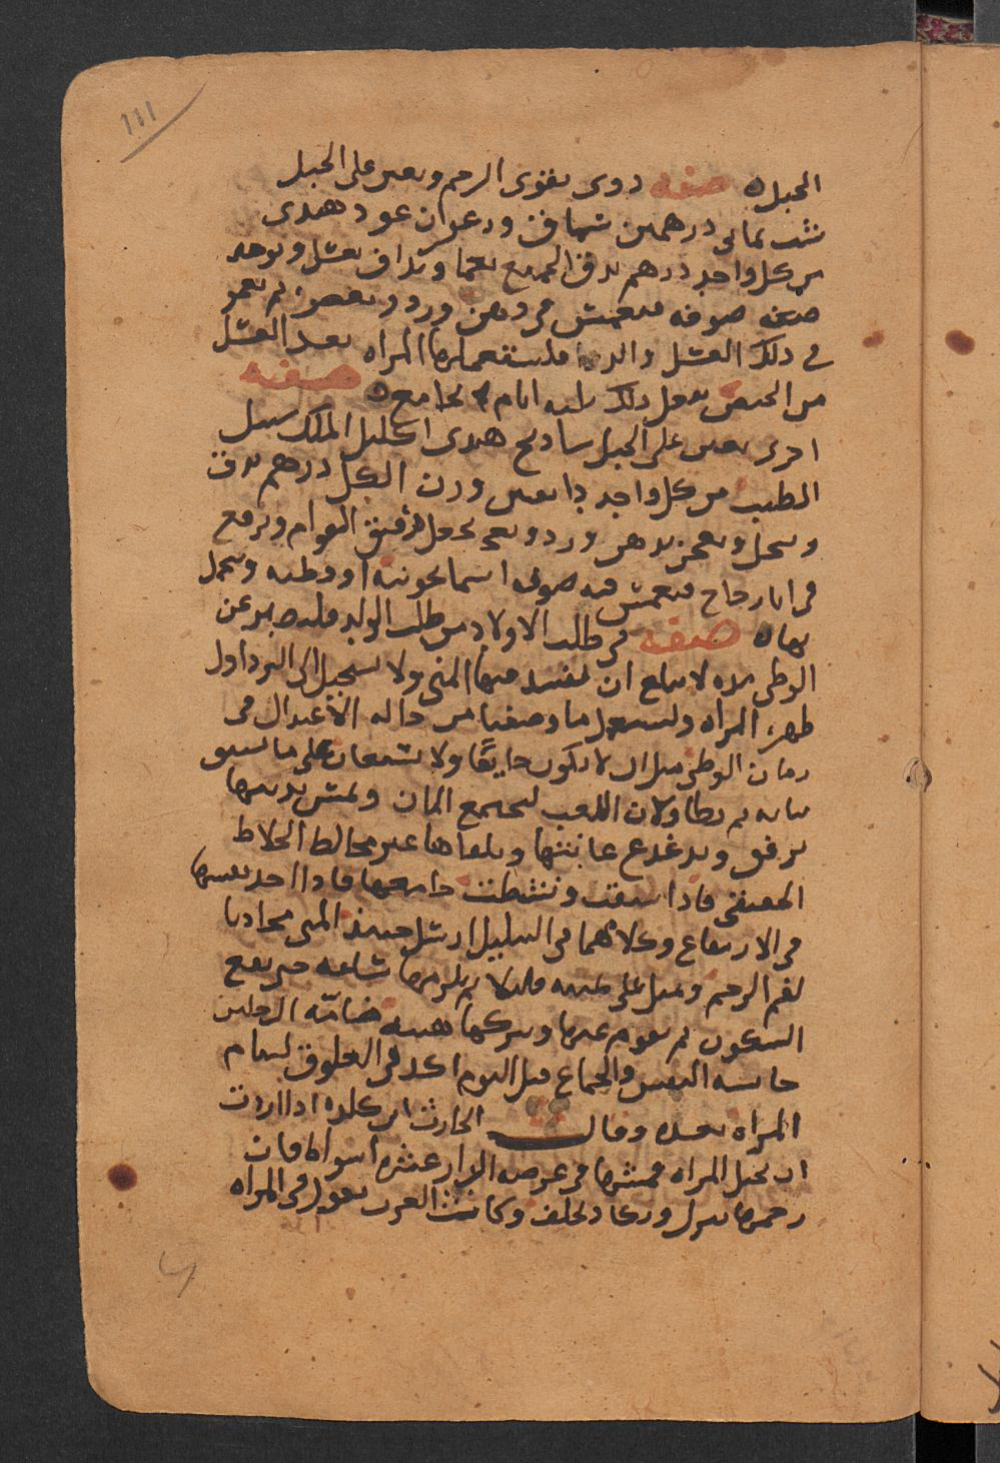 111
الحبل ه صفه دوى يقوى الرحم ويعين على الحبل
شب يمانى درهمين سماق وزعفران عود هندى
من كل واحد درهم يدق الجميع نعما ويداف بعسل ويوخذ
صوفه فتغمس فى دهن ورد وتعصر ثم تغمر
فى ذلك العسل والدوا فلتستعملها المراه بعد الغسل
من الحيض تفعل ذلك ثلثه ايام ثم تجامع ه صفه
اخرى تعين على الحبل سادج هندى اكليل الملك سنبل
الطيب من كل واحد دانقين وزن الكل درهم يدق
وينخل ويعجن بدهن ورد رقيق القوام ويرفع
فى انا زجاج فتغمس فيه صوفه اسمانجونيه او قطنه وتتحمل
بها ه صفه فى طلب الاولاد من طلب الولد فليصبر عن
الوطى مده لا يبلغ ان يفسد فيها المنى ولا يستحيل الى البرد اول
طهر المراه وليستعمل ما وصفنا من حاله الاعتدال فى
زمان الوطى مثل ان لا يكون جايعا ولا شبعان على ما سبق
بيانه ثم يطاول اللعب ليجتمع المان ويمس ثدييها
برفق ويدغدغ عانتها ويلقاها غير مخالط الخلاط
الحقيقى فاذا شبقت ونشطت جامعها فاذا اخذ نفسها
فى الارتفاع وكلامهما فى التبليل ارسل حينئذ المنى محاذيا
لفم الرحم ويميل على يمينه قليلا ثم يلزمها ساعه حتى يقع
السكون ثم يقوم عنها ويتركها هنيه ضامّه الرجلين
حابسه النفس والجماع قبل النوم اكد فى العلوق لتنام
المراه بعده وقال الحارث ابن كلده اذا اردت
ان تحبل المراه فمشها فى عرصه الدار عشره اشواط فان
رحمها ينزل ولا يكاد يخلف وكانت العرب تقول فى المراه